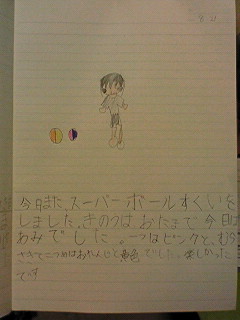 今日また、スーパーボールすくいを
しました。きのうは、おたまで今日は
あみでした。一つはピンクと、むら
さきで二つめはおれんじと黄色でした。楽しかった
です